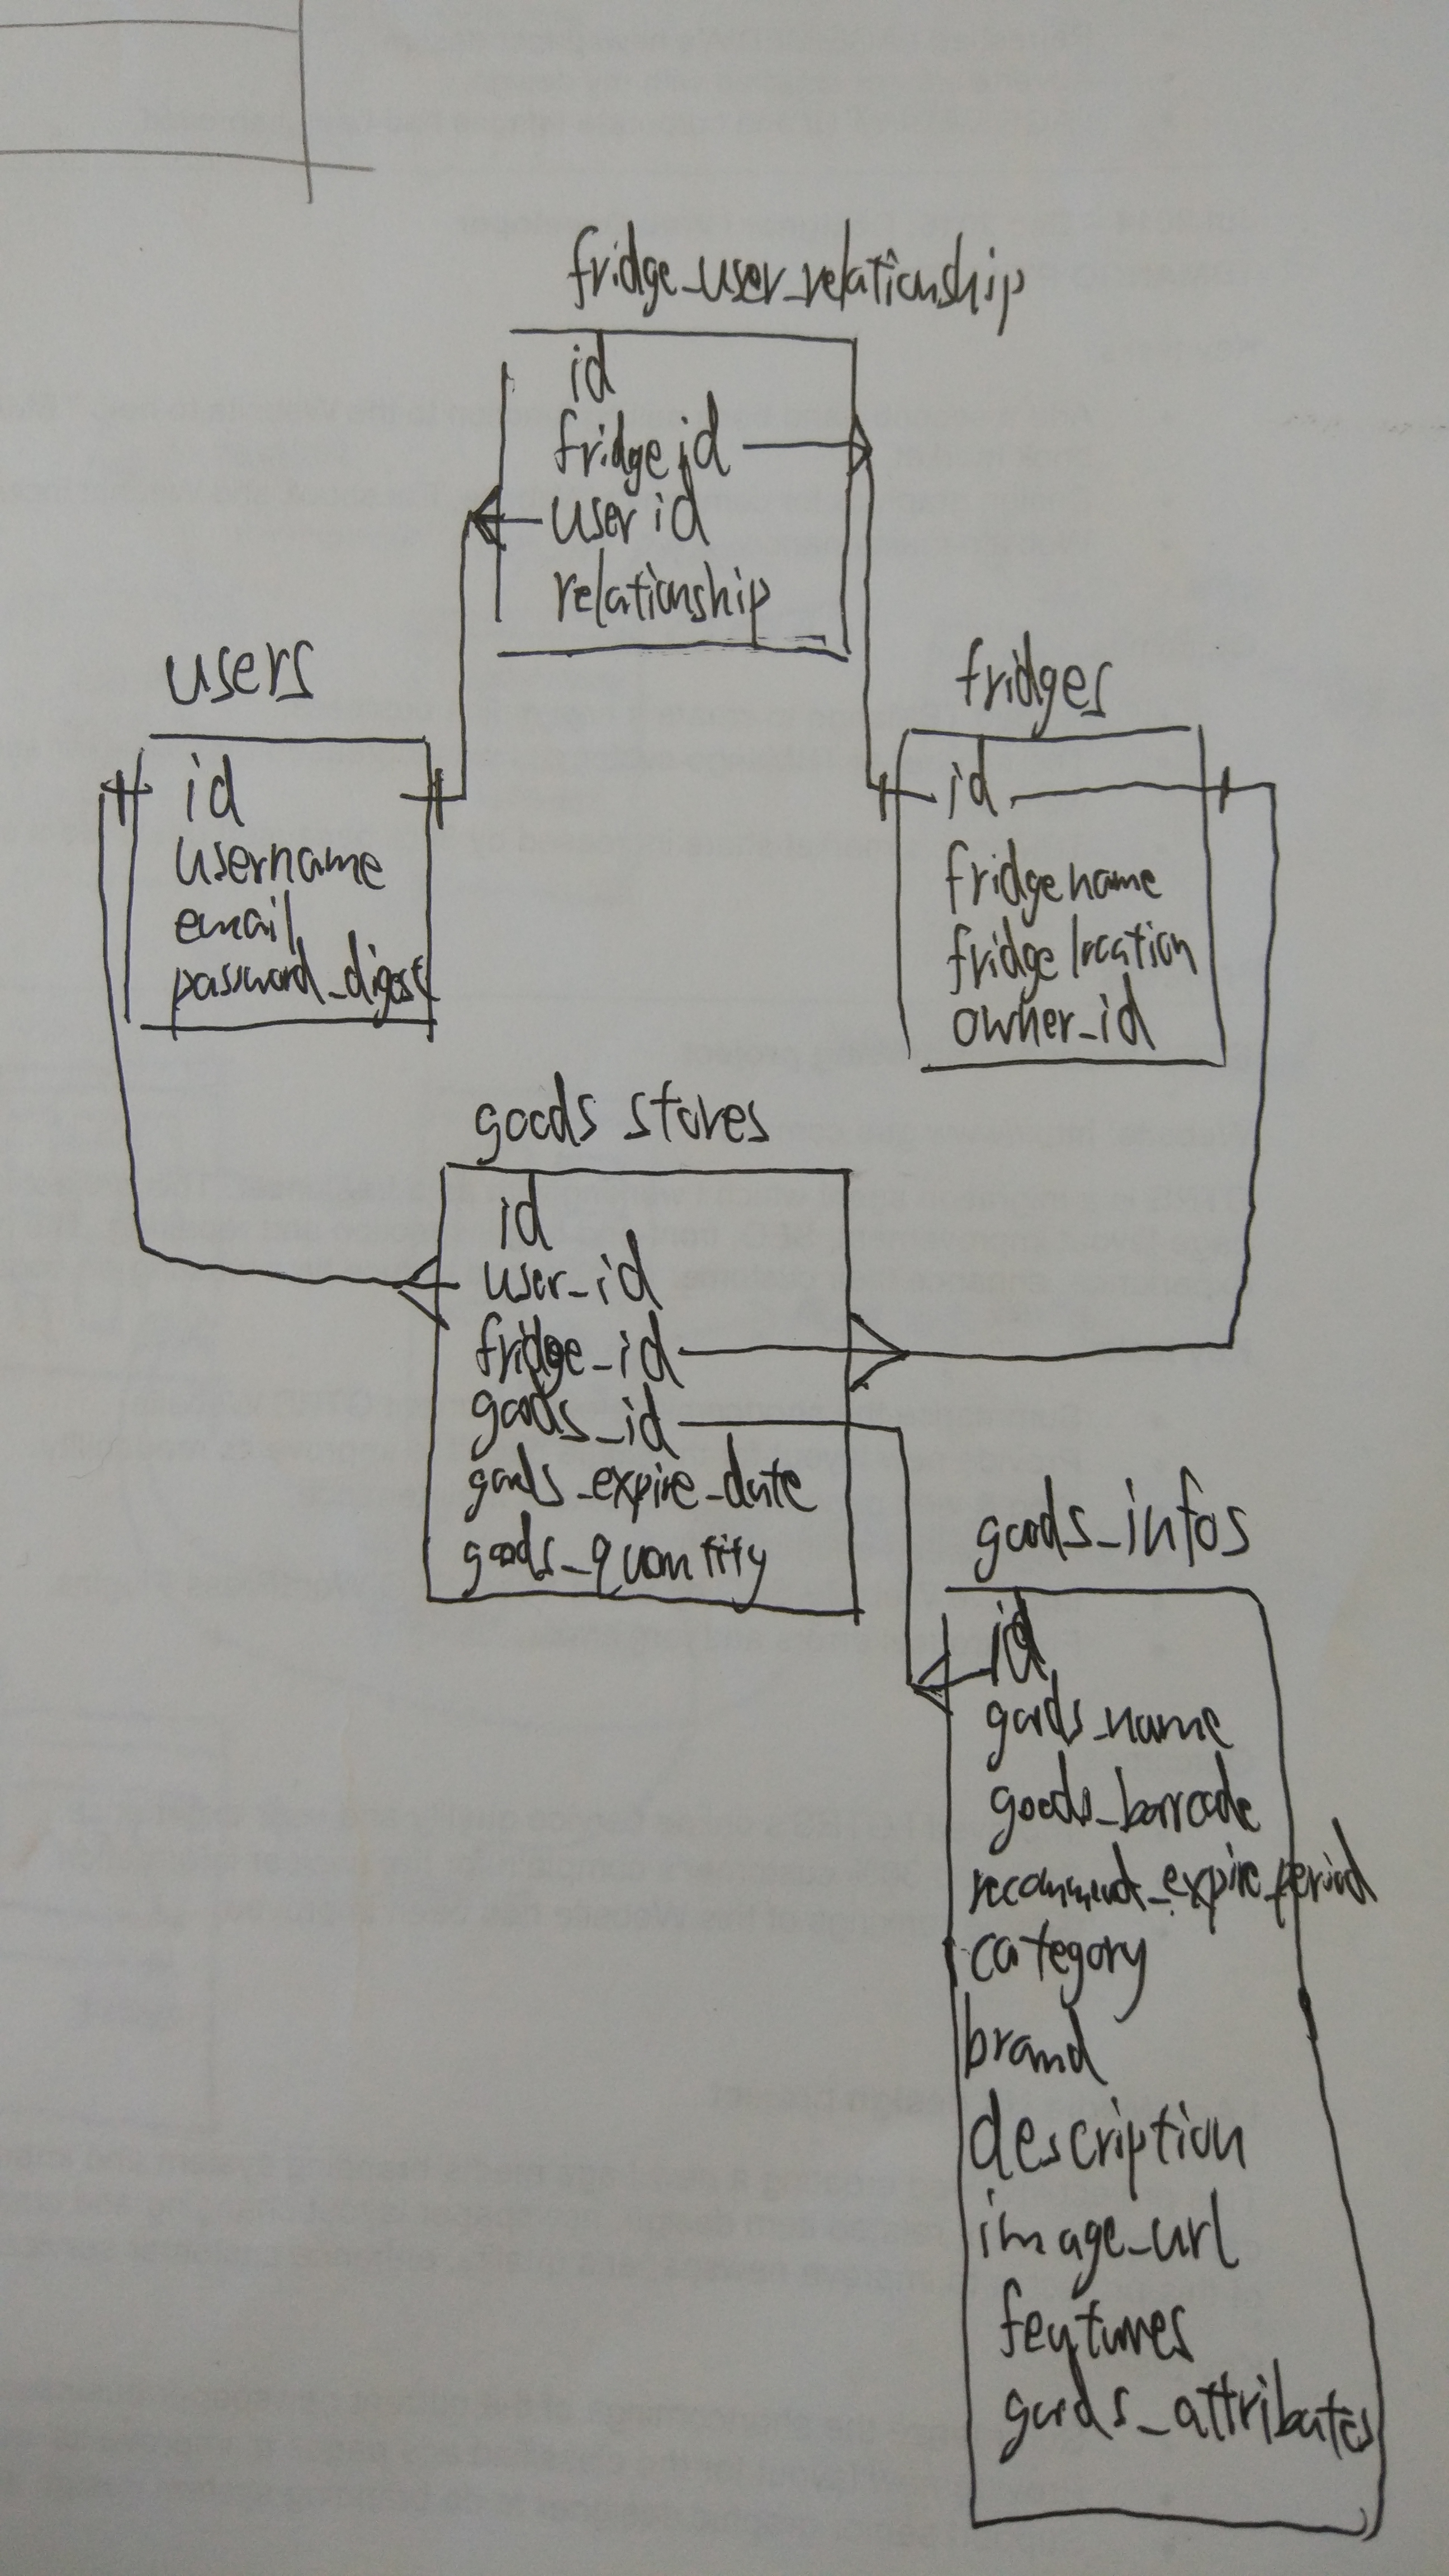 fridge_user_relationship
id
fridge id
user id
relationship
users
id
username
email
password_digest
fridges
id
fridge name
fridge location
owner_id
goods stores
id
user_id
fridge_id
goods_id
goods_expire_date
goods_quantity
goods_infos
id
goods_name
goods_barcode
recommend_expire_period
category
brand
description
image_url
features
goods_attributes